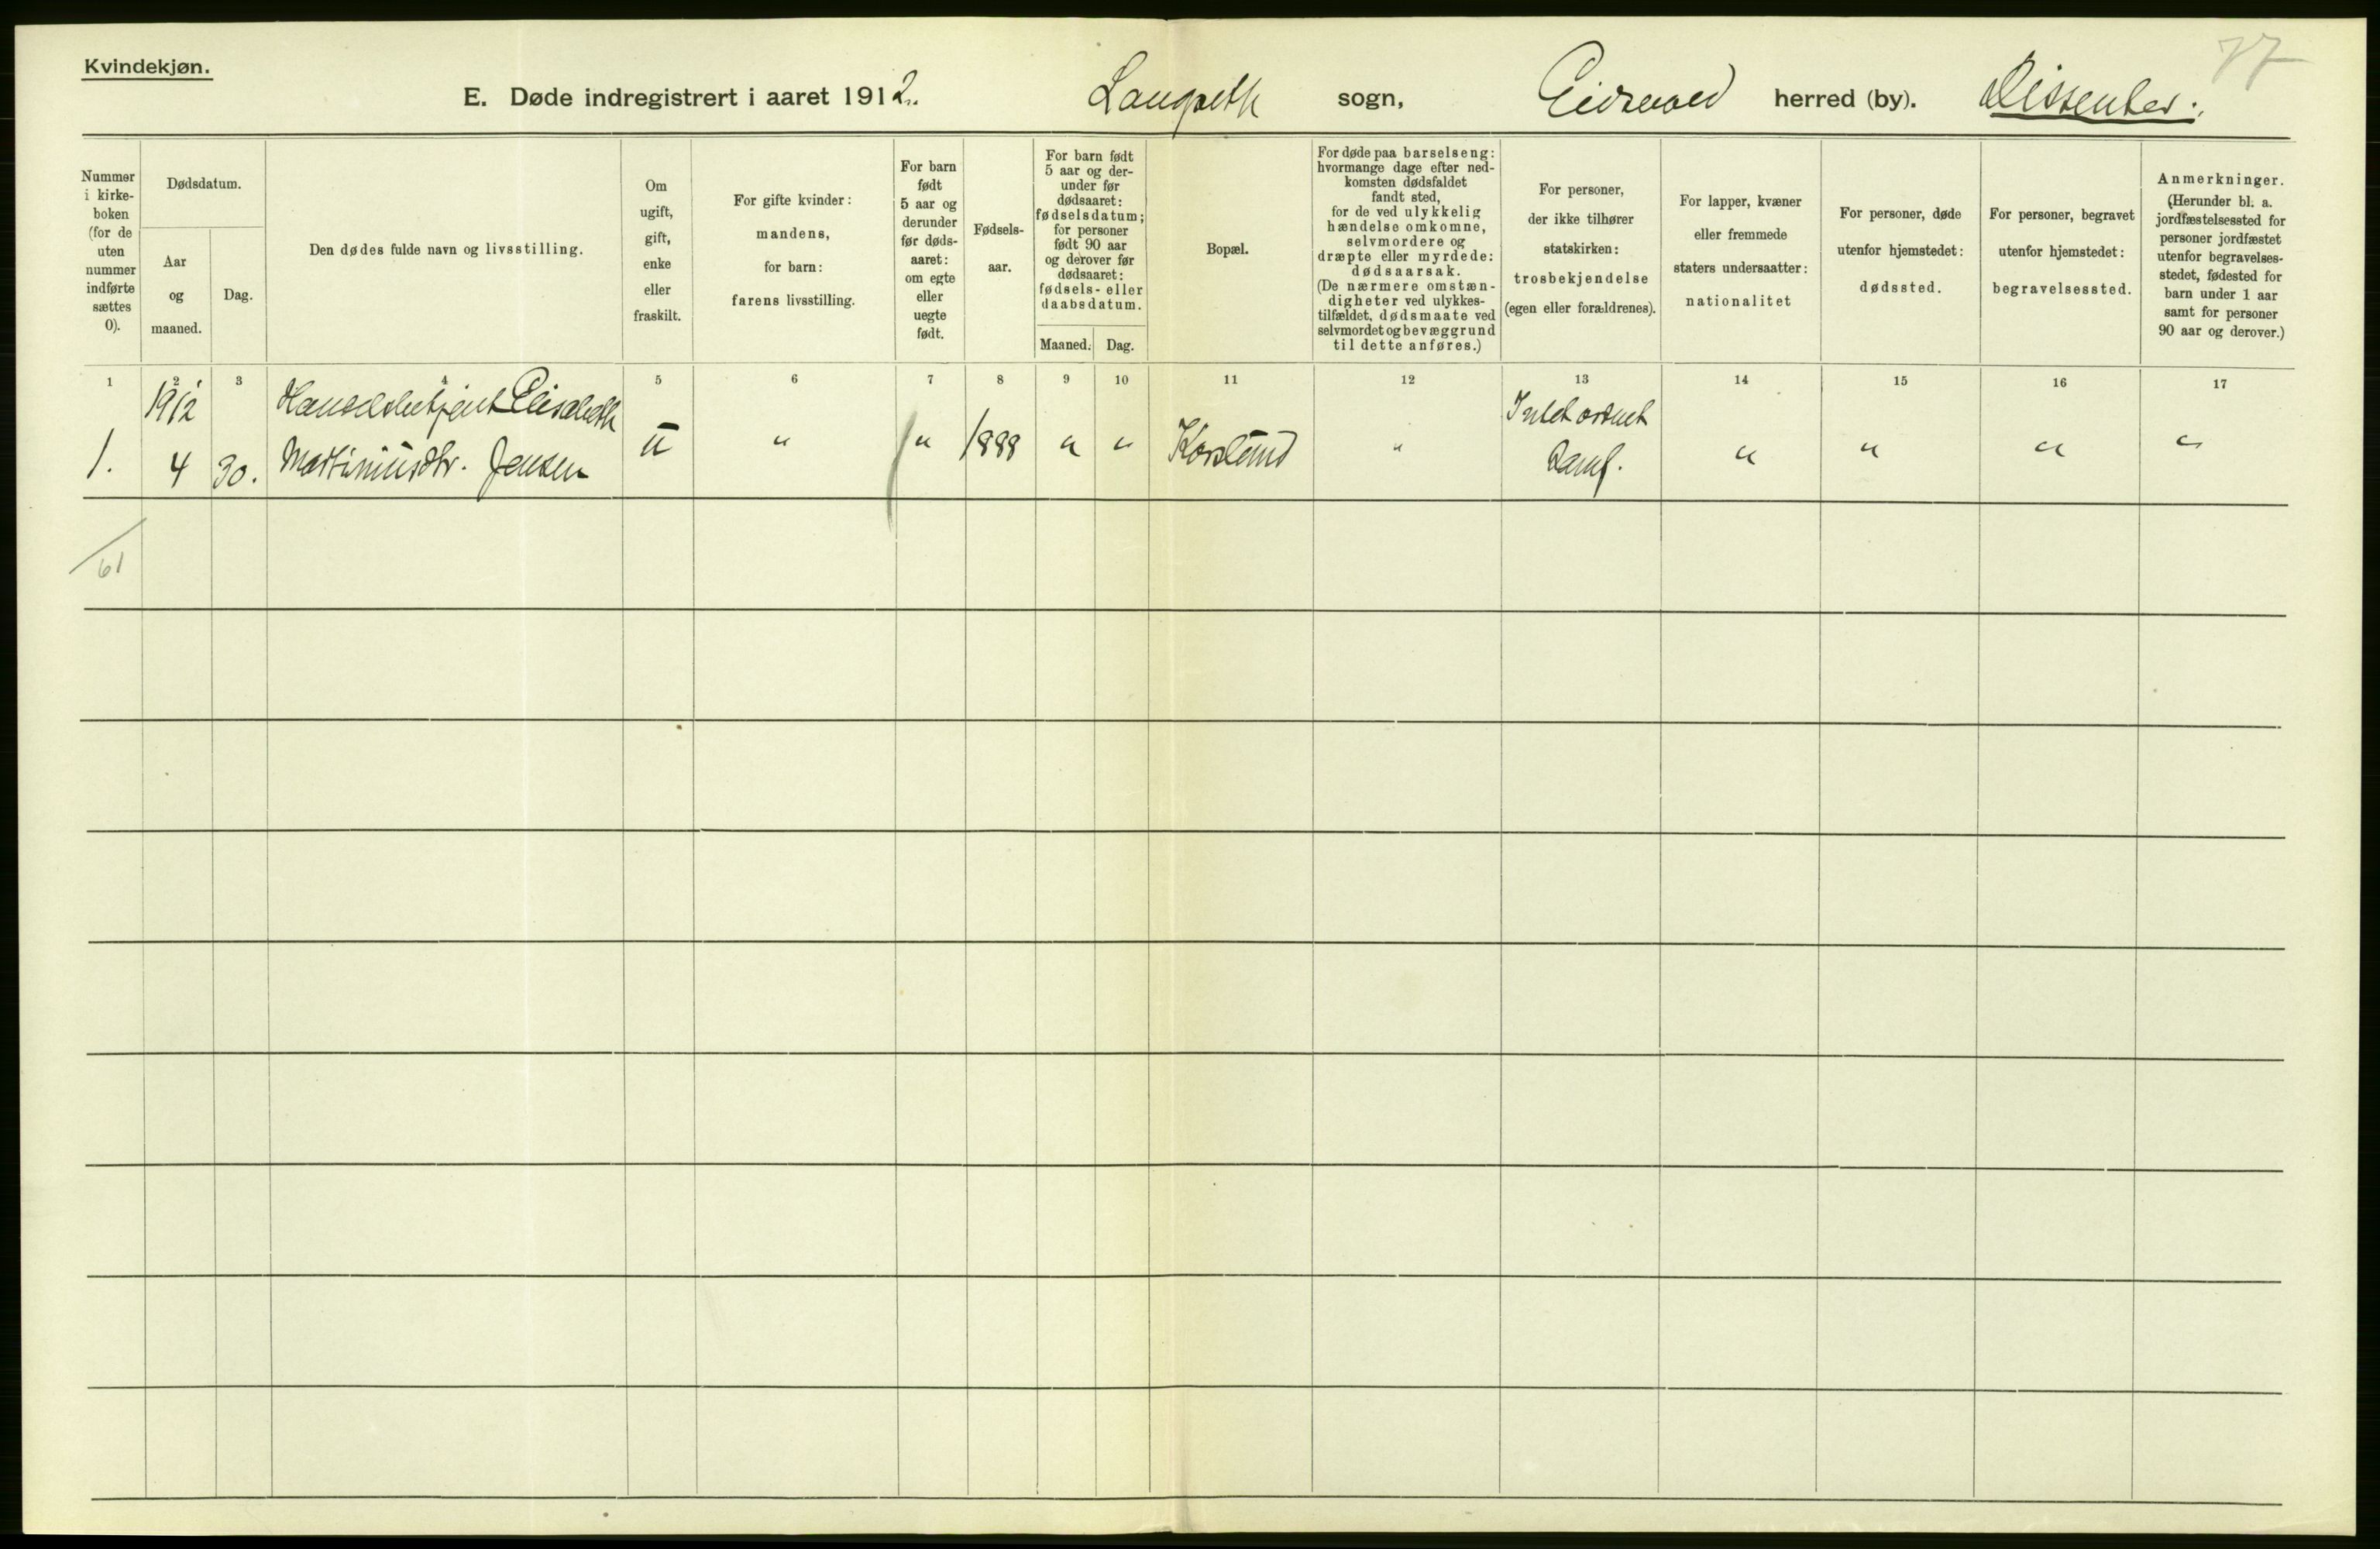 Kvindekjøn.
77
E. Døde indregistrert i aaret 1912. Langseth sogn, Eidsvold herred (by). Dissenter.
Nummer
i kirke-
boken
(for de
uten
nummer
indførte
sættes
0).
Dødsdatum.
Aar
og
maaned.
Dag.
Den dødes fulde navn og livsstilling.
Om
ugift,
gift,
enke
eller
fraskilt.
For gifte kvinder:
mandens,
for barn:
farens livsstilling.
For barn
født
5 aar og
derunder
før døds-
aaret:
om egte
eller
uegte
født.
Fødsels-
aar.
For barn født
5 aar og der-
under før
dødsaaret:
fødselsdatum;
for personer
født 90 aar
og derover før
dødsaaret:
fødsels- eller
daabsdatum.
Maaned.
Dag.
Bopæl.
For døde paa barselseng:
hvormange dage efter ned-
komsten dødsfaldet
fandt sted,
for de ved ulykkelig
hændelse omkomne,
selvmordere og
dræpte eller myrdede:
dødsaarsak.
(De nærmere omstæn-
digheter ved ulykkes-
tilfældet, dødsmaate ved
selvmordet og bevæggrund
til dette anføres.)
For personer,
der ikke tilhører
statskirken:
trosbekjendelse
(egen eller forældrenes).
For lapper, kvæner
eller fremmede
staters undersaatter:
nationalitet
For personer, døde
utenfor hjemstedet:
dødssted.
For personer, begravet
utenfor hjemstedet:
begravelsessted.
Anmerkninger.
(Herunder bl. a.
jordfæstelsessted for
personer jordfæstet
utenfor begravelses-
stedet, fødested for
barn under 1 aar
samt for personer
90 aar og derover.)
1 2 3 4 5 6 7 8 9 10 11 12 13 14 15 16 17
1912 Handelsbetjent Elisabeth Intet ordnet
1. 4 30. Martiniusdtr. Jensen u " " 1888 " " Korslund " Samf. " " " "
61